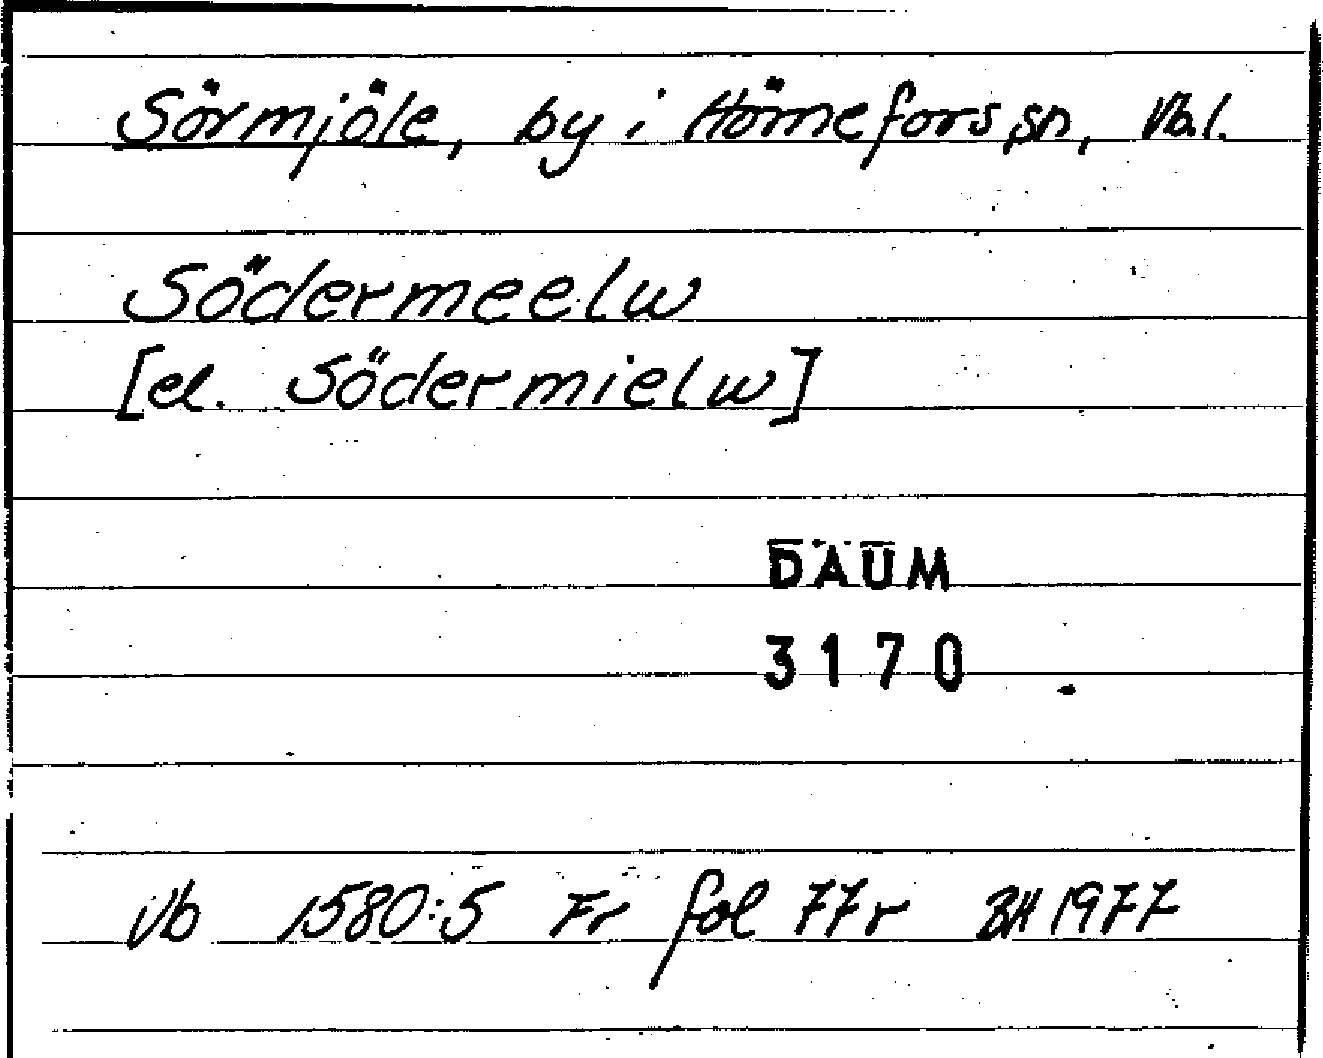 Sörmjöle, by i Hörnefors sn, Vb.l.
Södermeelw
[el. Södermielw]
DAUM
3170
Vb 1580:5 Fr fol 77r BH 1977